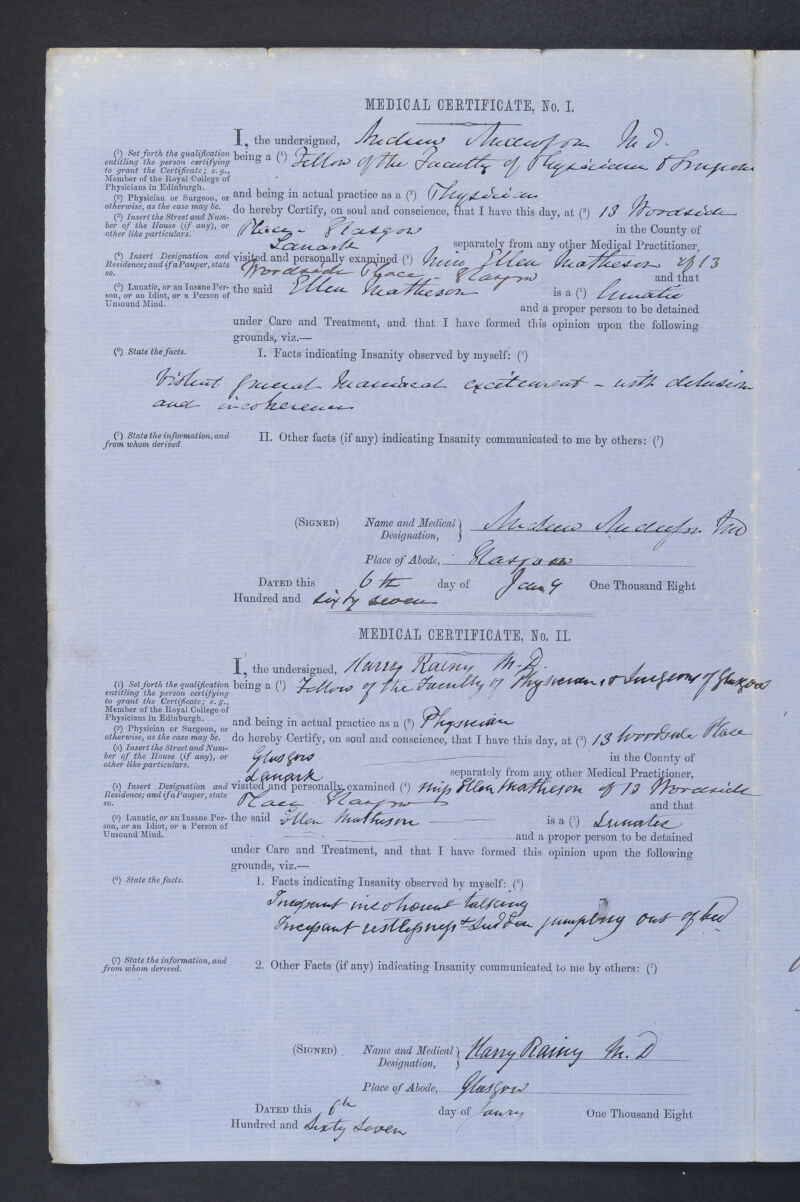 MEDICAL CERTIFICATE, No. I.
I, the undersigned, Andrew Anderson M.D.
(1) Set forth the qualification entitling the person certifying to grant the Certificate; e. g., Member of the Royal College of Physicians in Edinburgh.
being a (1) Fellow of the Faculty of Physicians & Surgeons
(2) Physician or Surgeon, or otherwise, as the case may be.
and being in actual practice as a (2) Physician
(3) Insert the Street and Number of the House (if any), or other like particulars.
do hereby Certify, on soul and conscience, that I have this day, at (3) 13 Woodside
Place - Glasgow in the County of
Lanark separately from any other Medical Practitioner,
(4) Insert Designation and Residence; and if a Pauper, state so.
visited and personally examined (4) Miss Ellen Matheson of 13
Woodside Place - Glasgow and that
(5) Lunatic, or an Insane Person, or an Idiot, or a Person of Unsound Mind.
the said Ellen Matheson is a (5) Lunatic
and a proper person to be detained
under Care and Treatment, and that I have formed this opinion upon the following
grounds, viz.—
(6) State the facts.
I. Facts indicating Insanity observed by myself: (6)
Violent general Maniacal excitement - with delusion
and incoherence
(7) State the information, and from whom derived.
II. Other facts (if any) indicating Insanity communicated to me by others: (7)
(SIGNED) Name and Medical Designation, Andrew Anderson MD
Place of Abode, Glasgow
DATED this 6th day of Jany One Thousand Eight
Hundred and sixty seven
MEDICAL CERTIFICATE, No. II.
I, the undersigned, Harry Rainy M.D.
(1) Set forth the qualification entitling the person certifying to grant the Certificate; e. g., Member of the Royal College of Physicians in Edinburgh.
being a (1) Fellow of the Faculty of Physicians & Surgeons of Glasgow
(2) Physician or Surgeon, or otherwise, as the case may be.
and being in actual practice as a (2) Physician
(3) Insert the Street and Number of the House (if any), or other like particulars.
do hereby Certify, on soul and conscience, that I have this day, at (3) 13 Woodside Place
Glasgow in the County of
Lanark separately from any other Medical Practitioner,
(4) Insert Designation and Residence; and if a Pauper, state so.
visited and personally examined (4) Miss Ellen Matheson of 13 Woodside
Place Glasgow and that
(5) Lunatic, or an Insane Person, or an Idiot, or a Person of Unsound Mind.
the said Ellen Matheson is a (5) Lunatic
and a proper person to be detained
under Care and Treatment, and that I have formed this opinion upon the following
grounds, viz.—
(6) State the facts.
1. Facts indicating Insanity observed by myself: (6)
Incessant incoherent talking
Incessant restlessness & sudden jumping out of bed
(7) State the information, and from whom derived.
2. Other Facts (if any) indicating Insanity communicated to me by others: (7)
(SIGNED) Name and Medical Designation, Harry Rainy M.D
Place of Abode, Glasgow
DATED this 6th day of Janry One Thousand Eight
Hundred and Sixty Seven